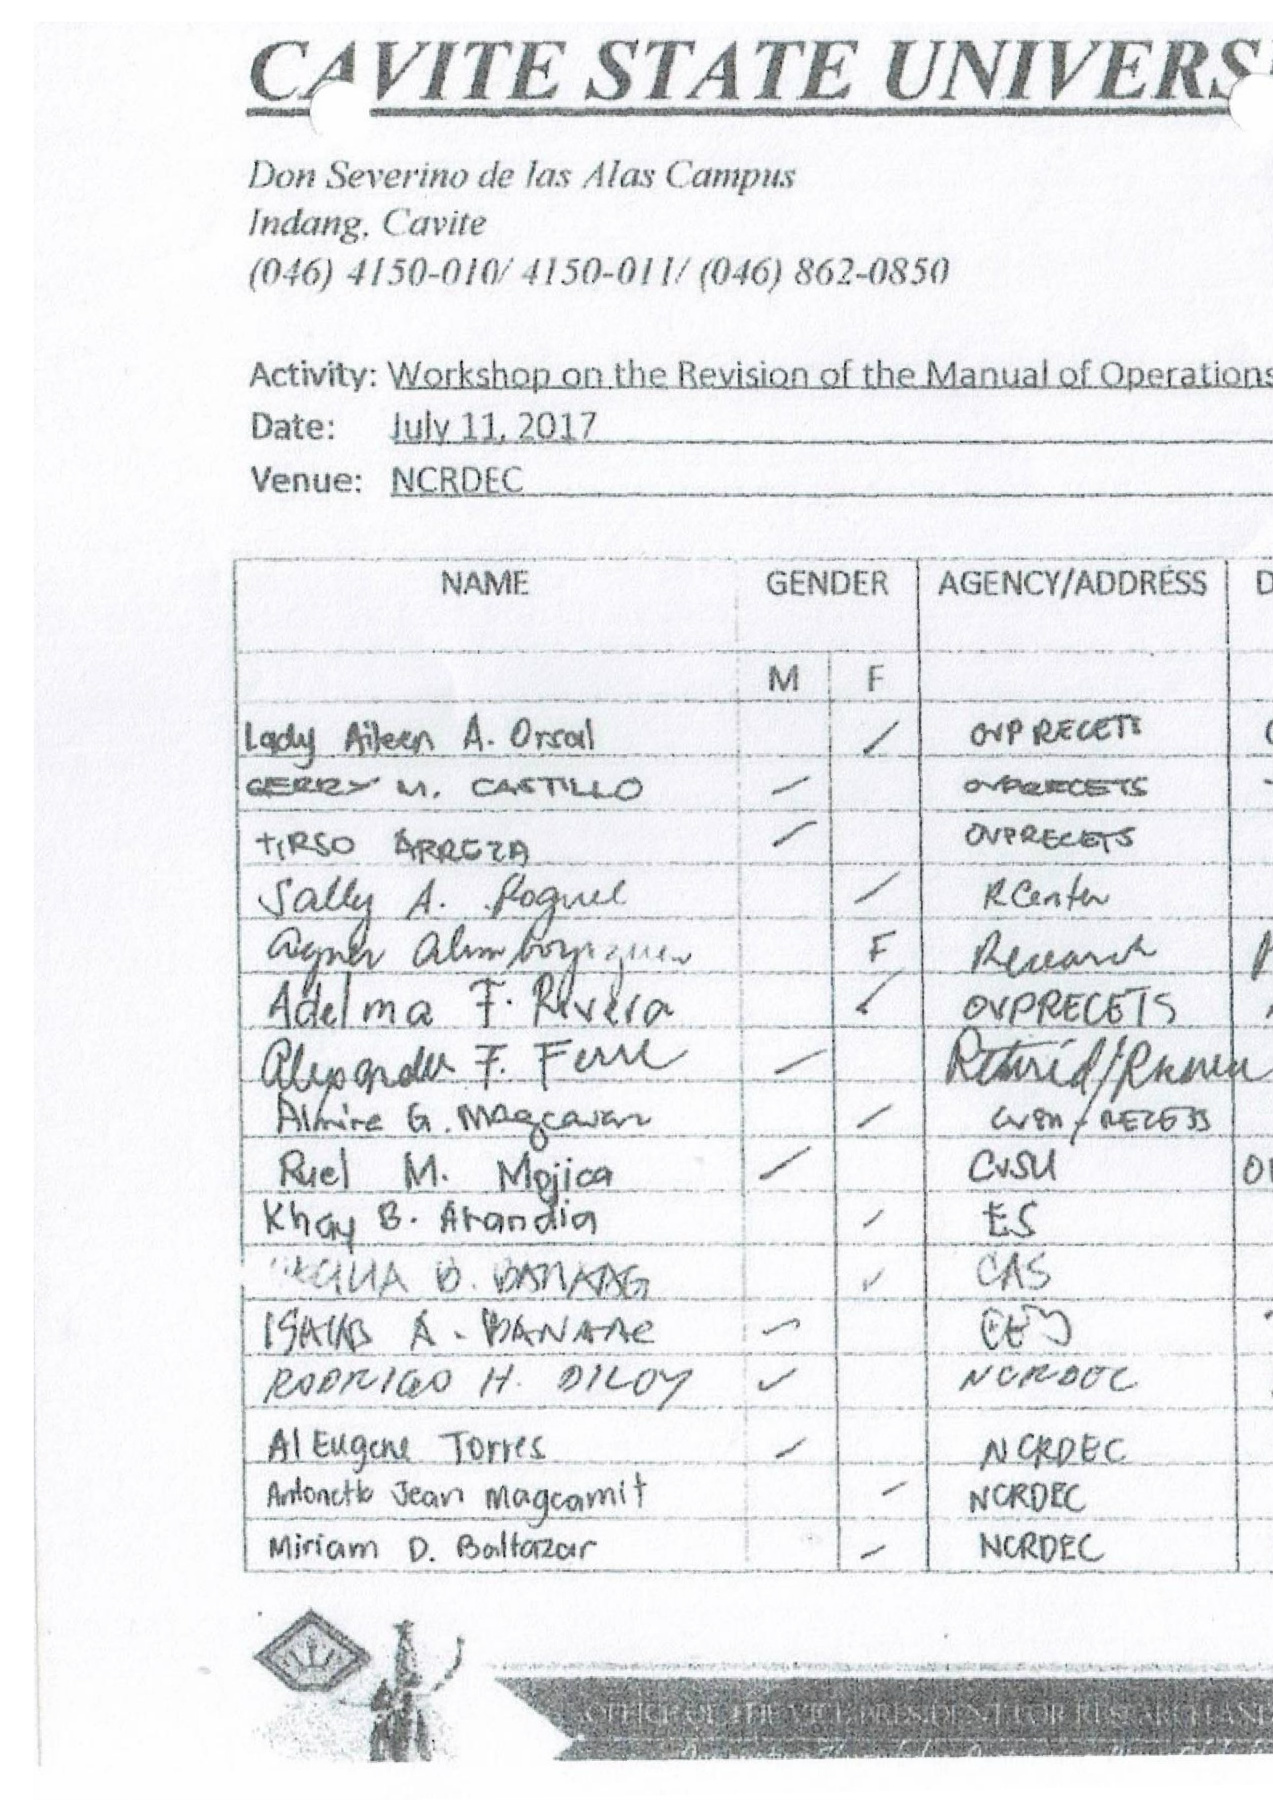 CAVITE STATE UNIVERS
Don Severino de las Alas Campus
Indang, Cavite
(046) 4150-010/ 4150-011/ (046) 862-0850
Activity: Workshop on the Revision of the Manual of Operations
Date: July 11, 2017
Venue: NCRDEC
NAME GENDER AGENCY/ADDRESS D
M F
Lady Aileen A. Orsal OVPRECETS
GERRY M. CASTILLO OVPRECETS
TIRSO ARREZA OVPRECETS
Sally A. R Center
F Research
Adelma F. Rivera OVPRECETS
Alexander F.
Almira G. Magcawas
Ruel M. Mojica CvSU
Khay B. Arandia ES
B. BANAAG CAS
A.
RODRIGO H. DILOY NCRDEC
Al Eugene Torres NCRDEC
Antonette Jean Magcamit NCRDEC
Miriam D. Baltazar NCRDEC
OFFICE OF THE VICE PRESIDENT FOR RESEARCH AND